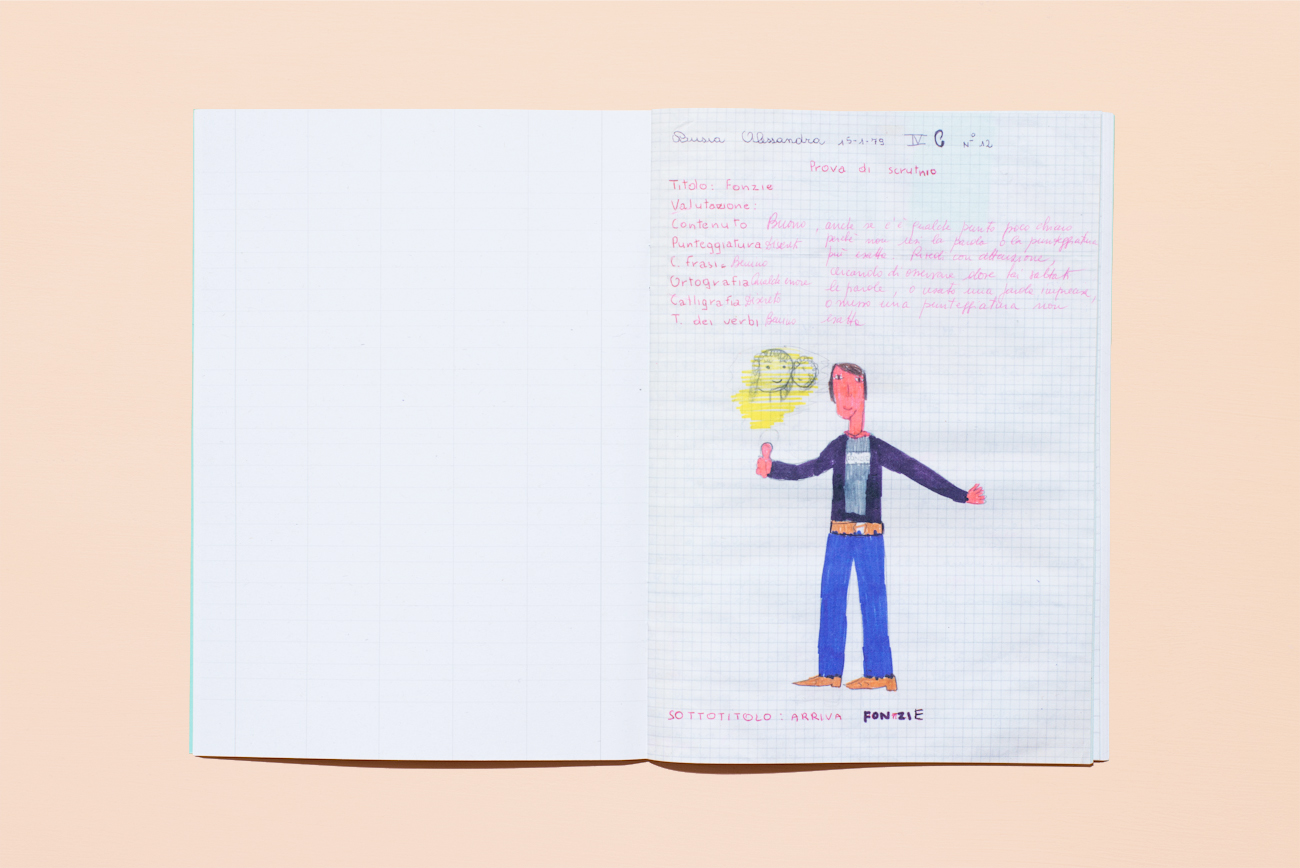 Alessandra 15-1-79 IV C N° 12
Prova di scrutnio
Titolo: Fonzie
Valutazione:
Contenuto Buono, anche se c'è qualche punto poco chiaro
Punteggiatura discreta perché non usi la parola o la punteggiatura
C. frasi = Buono più esatta. Rivedi con attenzione,
Ortografia qualche errore cercando di osservare dove hai saltato
Calligrafia discreta le parole, o usato una parola imprecisa,
T. dei verbi Buono o messo una punteggiatura non
esatta
SOTTOTITOLO: ARRIVA FONZIE